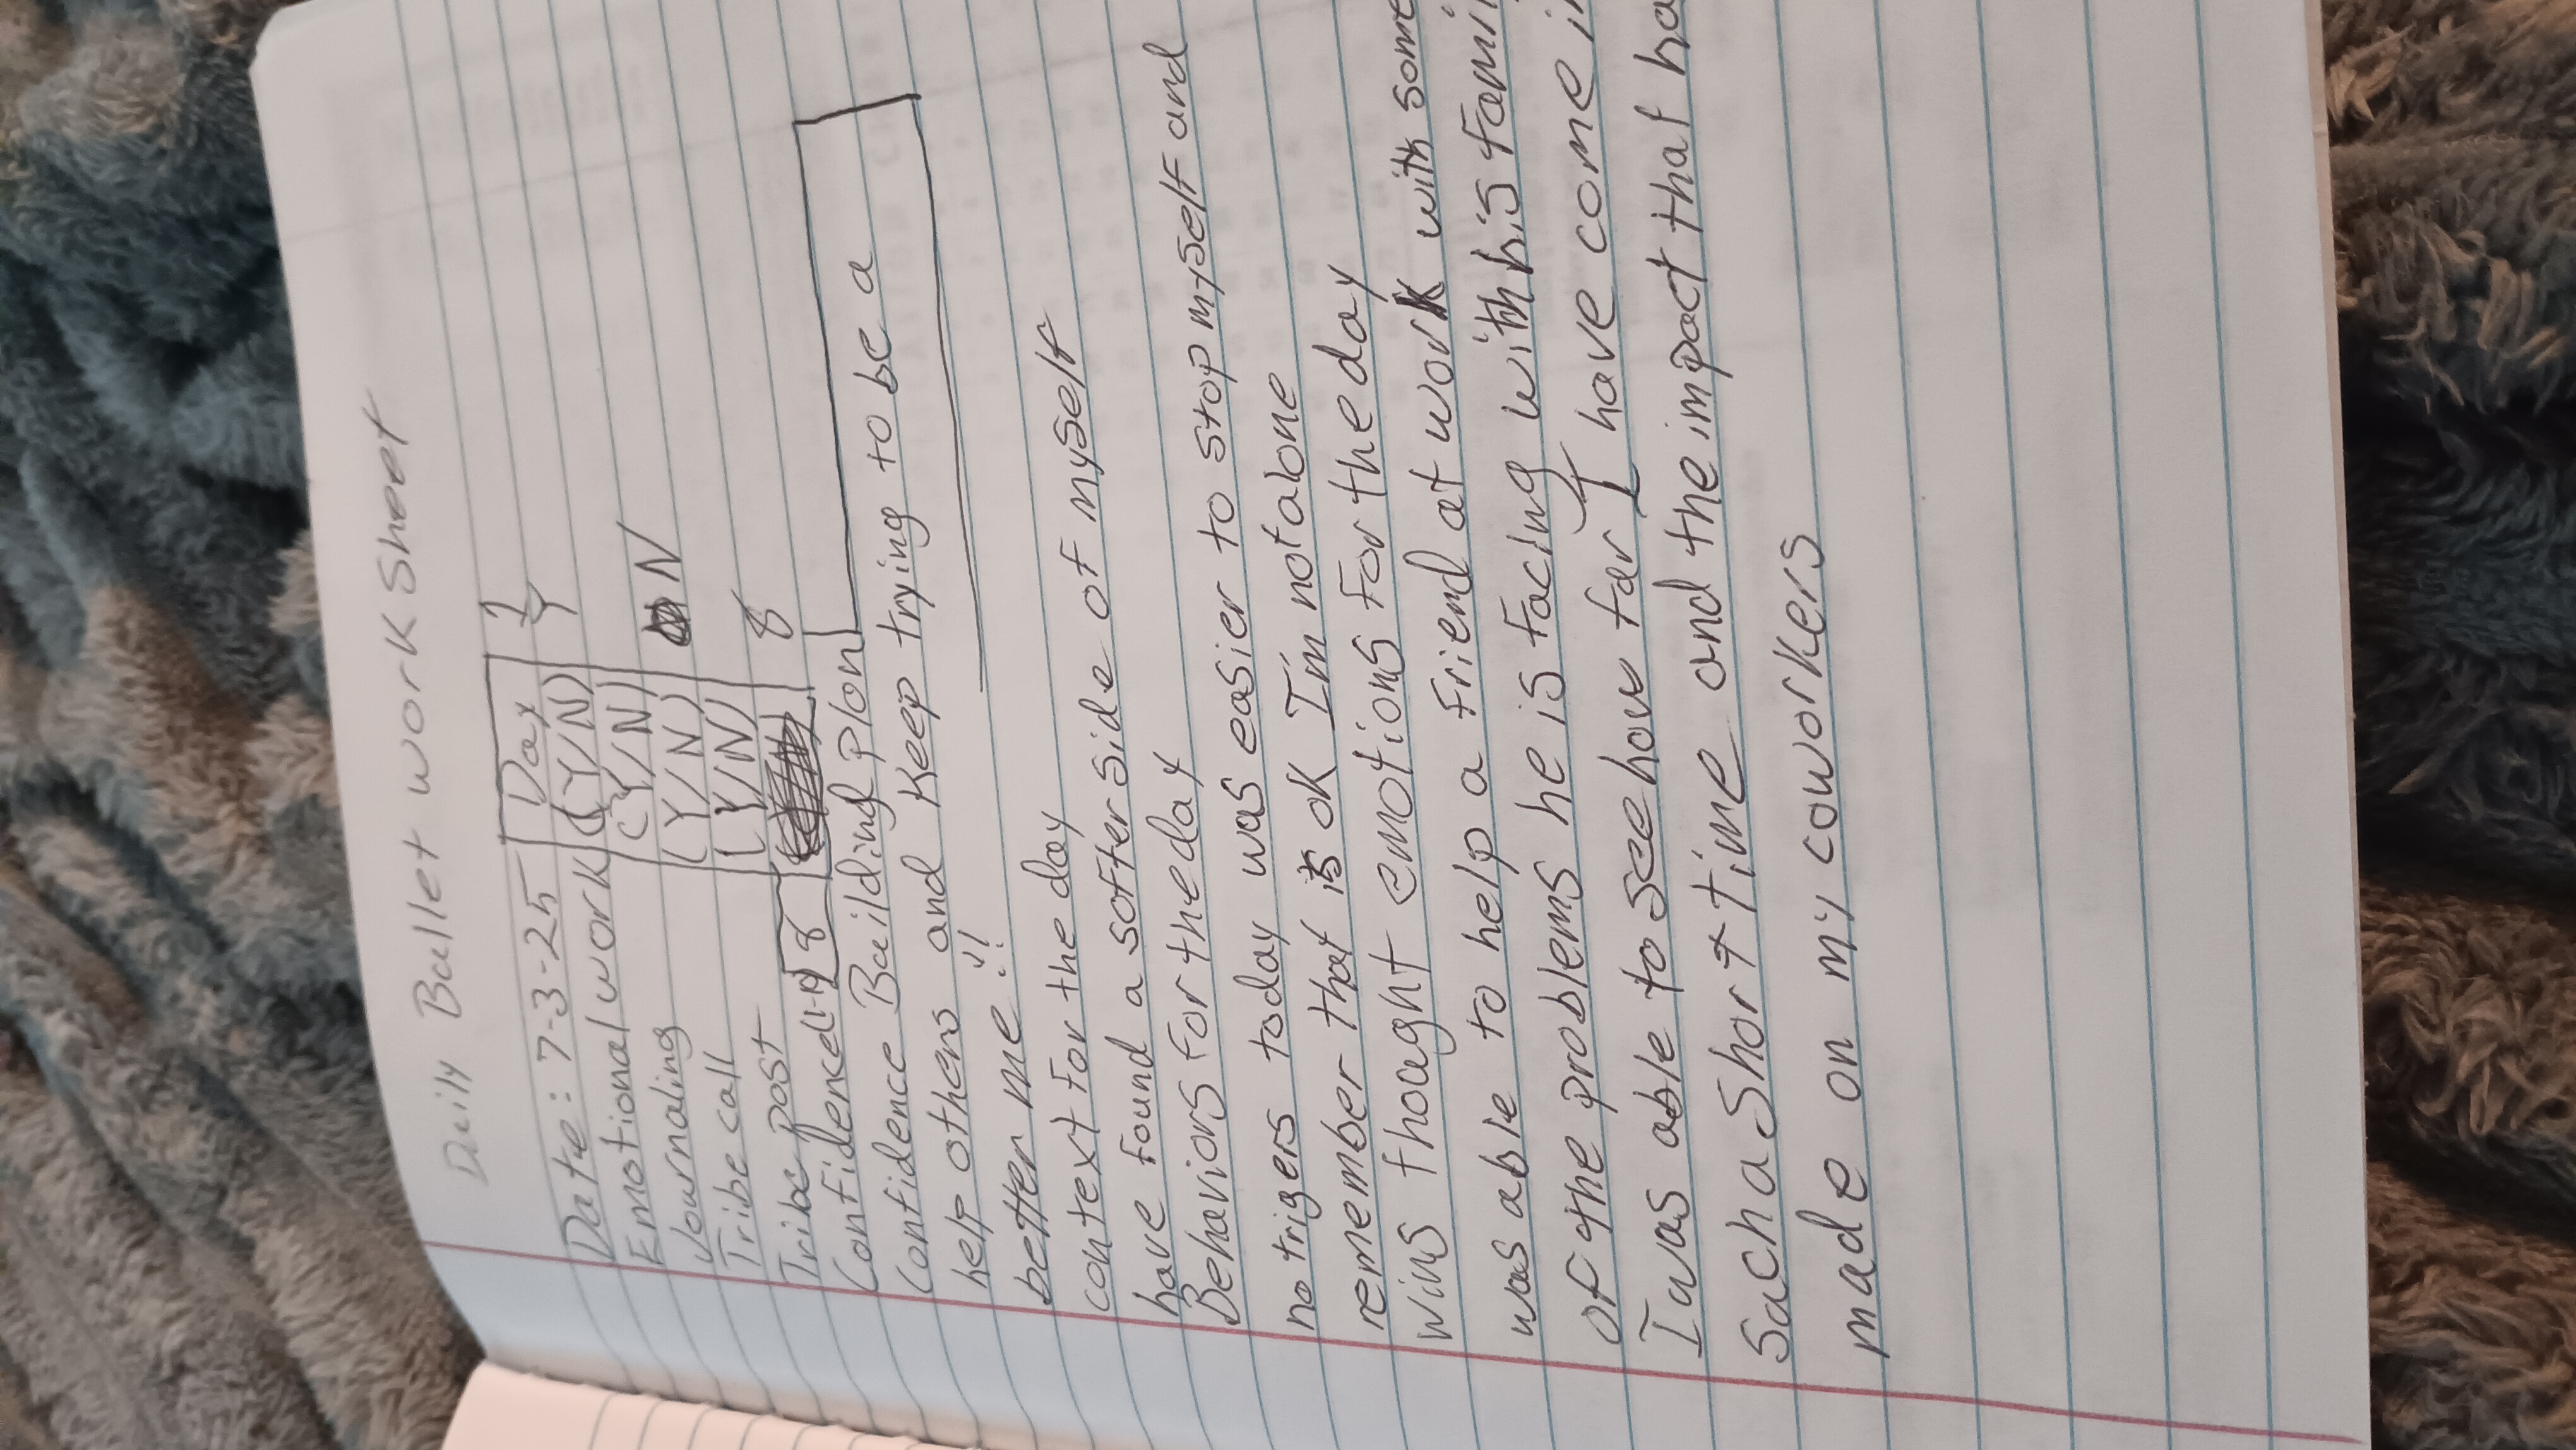 Daily Bullet work Sheet
Date: 7-3-25 Day 1
Emotional work (Y/N) Y
Journaling (Y/N)
Tribe call (Y/N) N
Tribe post (Y/N)
Confidence(1-10) 8 8
Confidence Building plan
Confidence and Keep trying to be a
help others
better me !!
context for the day
have found a softer side of myself
Behaviors for the day
no trigers today was easier to stop myself and
remember that is ok I'm not alone
wins thought emotions for the day
was able to help a friend at work with some
of the problems he is facing with his
I was able to see how far I have come
Such a short time and the impact that
made on my coworkers